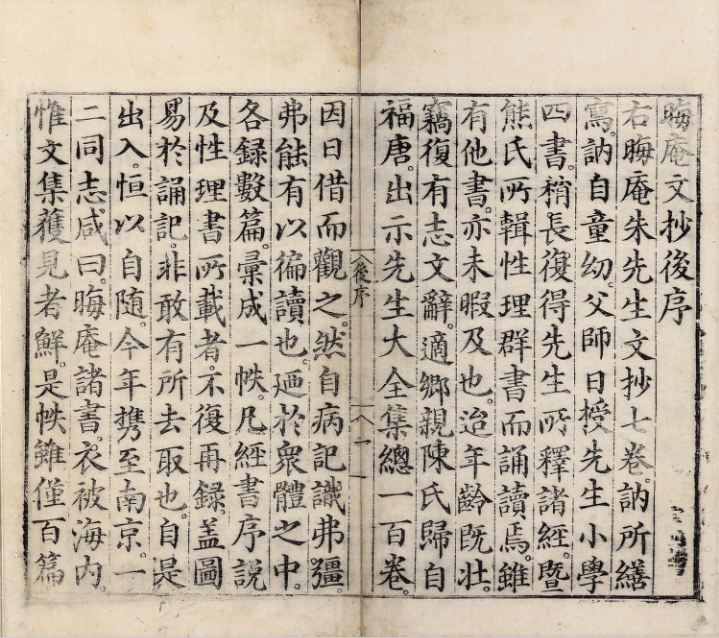 晦庵文抄後序
右晦庵朱先生文抄七卷。訥所繕
寫。訥自童幼。父師日授先生小學
四書。稍長復得先生所釋諸經。暨
熊氏所輯性理群書而誦讀焉。雖
有他書。亦未暇及也。迨年齡既壯。
竊復有志文辭。適鄉親陳氏歸自
福唐。出示先生大全集總一百卷。
後序
八一
因日借而觀之。然自病記識弗彊。
弗能有以徧讀也。廼於衆體之中。
各録數篇。彙成一帙。凡經書序説
及性理書所載者。不復再録。盖圖
易於誦記。非敢有所去取也。自是
出入。恒以自随。今年携至南京。一
二同志咸曰。晦庵諸書。衣被海内。
惟文集獲見者鮮。是帙雖僅百篇